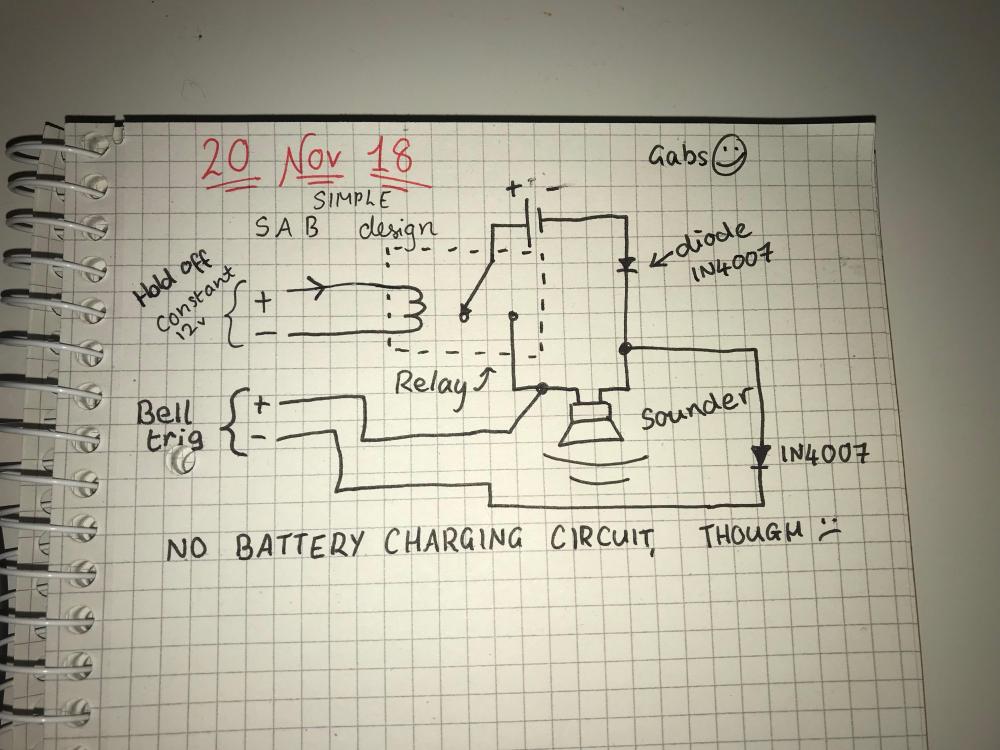 20 Nov 18
Gabs
SIMPLE
SAB design
+ -
diode
1N4007
Hold off
Constant
12v
+
-
Relay
Sounder
Bell
trig
+
-
1N4007
NO BATTERY CHARGING CIRCUIT, THOUGH